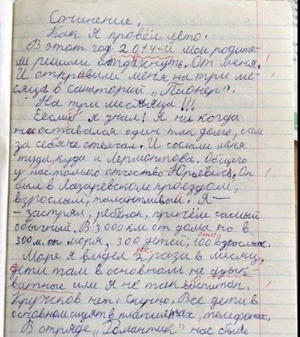 Сочинение.
Как Я провёл лето.
В этот год 2014-й мои родите-
ли решили отдохнуть. От меня.
И отправили меня на три ме-
сяца в санаторий „Пионер".
На три месяца!!!
Еесли б я знал! Я ни когда
не оставался один так долго, сам
за себя не отвечал. И сослали меня
туда, куда и Лермонтова. Общего
у нас только отчество Юрьевич. Он
был в Лазаревском проездом,
взрослым, талантливым. Я –
застрял, ребёнок, причём самый
обычный. В 3000 км от дома но в
300 м. от моря, 300 детей, 100 взрослых.
Море я видел 2 раза в месяц,
дети там в основном не адык-
ватные или я не так воспитан.
Кружков нет. Скучно. Все дети в
основном сидят в планшетах, телефонах.
В отряде „Романтик" нас было